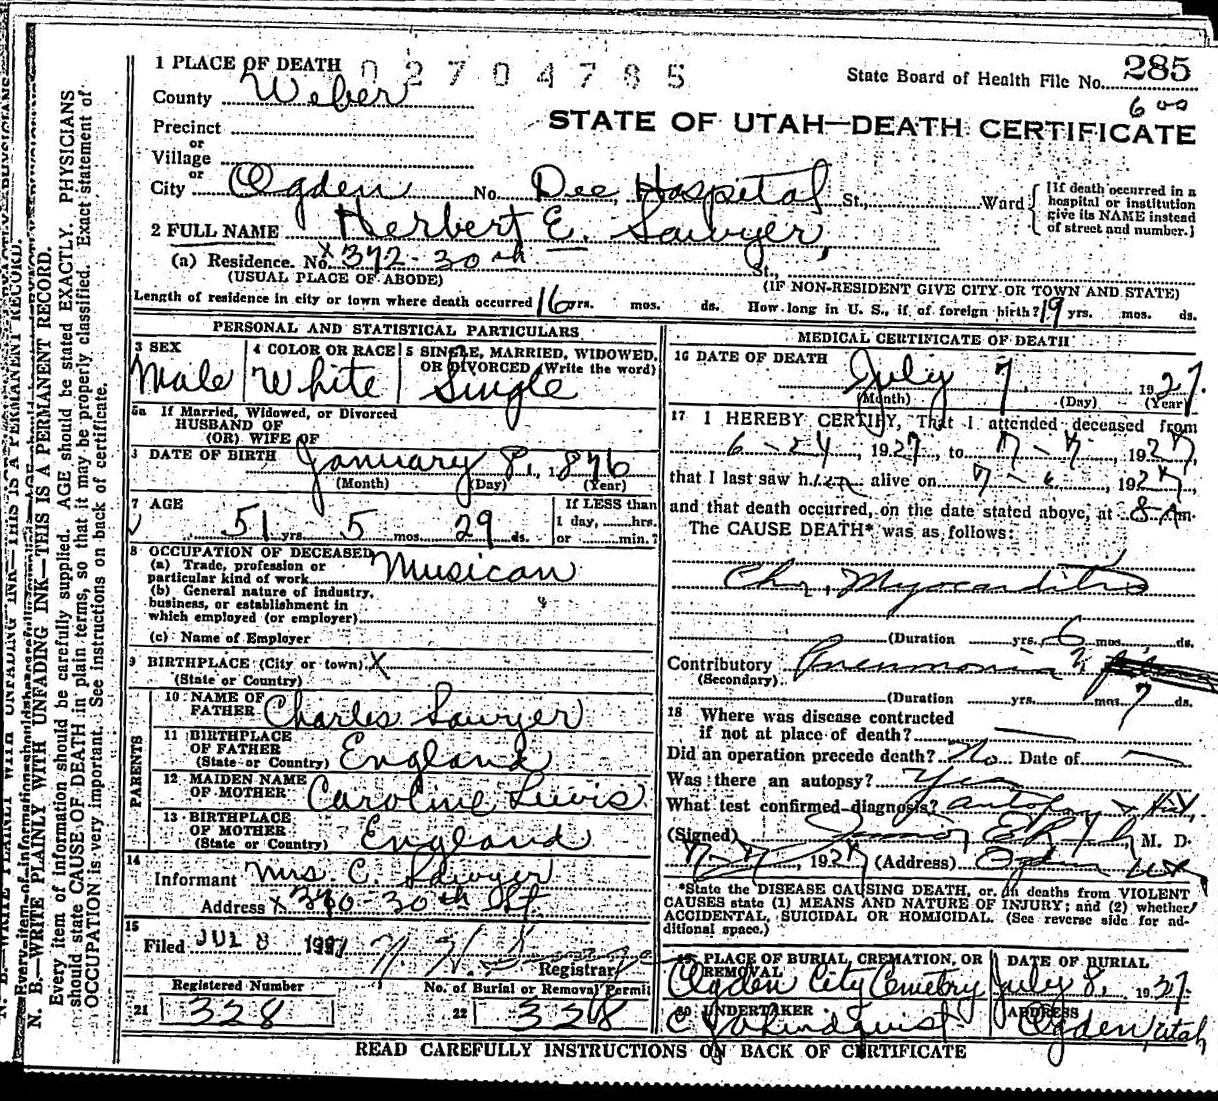 1 PLACE OF DEATH 02704785
State Board of Health File No. 285
County Weber
600
STATE OF UTAH—DEATH CERTIFICATE
Precinct
or
Village
or
City Ogden No. Dee Hospital St., Ward
[If death occurred in a hospital or institution give its NAME instead of street and number.]
2 FULL NAME Herbert E. Sawyer,
(a) Residence. No. x 372-30th St.,
(USUAL PLACE OF ABODE) (IF NON-RESIDENT GIVE CITY OR TOWN AND STATE)
Length of residence in city or town where death occurred 16 yrs. mos. ds. How long in U. S., if of foreign birth? 19 yrs. mos. ds.
PERSONAL AND STATISTICAL PARTICULARS
3 SEX Male
4 COLOR OR RACE White
5 SINGLE, MARRIED, WIDOWED, OR DIVORCED (Write the word) Single
5a If Married, Widowed, or Divorced
HUSBAND OF
(OR) WIFE OF
DATE OF BIRTH January 8, 1876
(Month) (Day) (Year)
7 AGE 51 yrs. 5 mos. 29 ds.
If LESS than
1 day, ......hrs.
or ......min.?
8 OCCUPATION OF DECEASED
(a) Trade, profession or
particular kind of work Musican
(b) General nature of industry,
business, or establishment in
which employed (or employer)
(c) Name of Employer
9 BIRTHPLACE (City or town) X
(State or Country)
PARENTS
10 NAME OF FATHER Charles Sawyer
11 BIRTHPLACE OF FATHER
(State or Country) England
12 MAIDEN NAME OF MOTHER Caroline Lewis
13 BIRTHPLACE OF MOTHER
(State or Country) England
14
Informant Mrs. C. Sawyer
Address x 370-30th St.
15
Filed JUL 8 1927
Registrar
Registered Number
21 328
No. of Burial or Removal Permit
22 328
MEDICAL CERTIFICATE OF DEATH
16 DATE OF DEATH July 7, 1927
(Month) (Day) (Year)
17 I HEREBY CERTIFY, That I attended deceased from
6-24, 1927, to 7-7, 1927,
that I last saw him alive on 7-6, 1927,
and that death occurred, on the date stated above, at 8 A m.
The CAUSE DEATH* was as follows:
Chr. Myocarditis
(Duration yrs. 6 mos. ds.
Contributory Pneumonia
(Secondary)
(Duration yrs. mos. 7 ds.
18 Where was disease contracted
if not at place of death?
Did an operation precede death? No Date of
Was there an autopsy? Yes
What test confirmed diagnosis? autopsy
(Signed) M. D.
7-7, 1927 (Address) Ogden Utah
*State the DISEASE CAUSING DEATH, or in deaths from VIOLENT
CAUSES state (1) MEANS AND NATURE OF INJURY; and (2) whether
ACCIDENTAL, SUICIDAL OR HOMICIDAL. (See reverse side for ad-
ditional space.)
19 PLACE OF BURIAL, CREMATION, OR REMOVAL
Ogden City Cemetery
DATE OF BURIAL
July 8, 1927
20 UNDERTAKER
ADDRESS
Ogden, Utah
READ CAREFULLY INSTRUCTIONS ON BACK OF CERTIFICATE
N. B.—WRITE PLAINLY WITH UNFADING INK—THIS IS A PERMANENT RECORD.
Every item of information should be carefully supplied. AGE should be stated EXACTLY. PHYSICIANS
should state CAUSE OF DEATH in plain terms, so that it may be properly classified. Exact statement of
OCCUPATION is very important. See instructions on back of certificate.